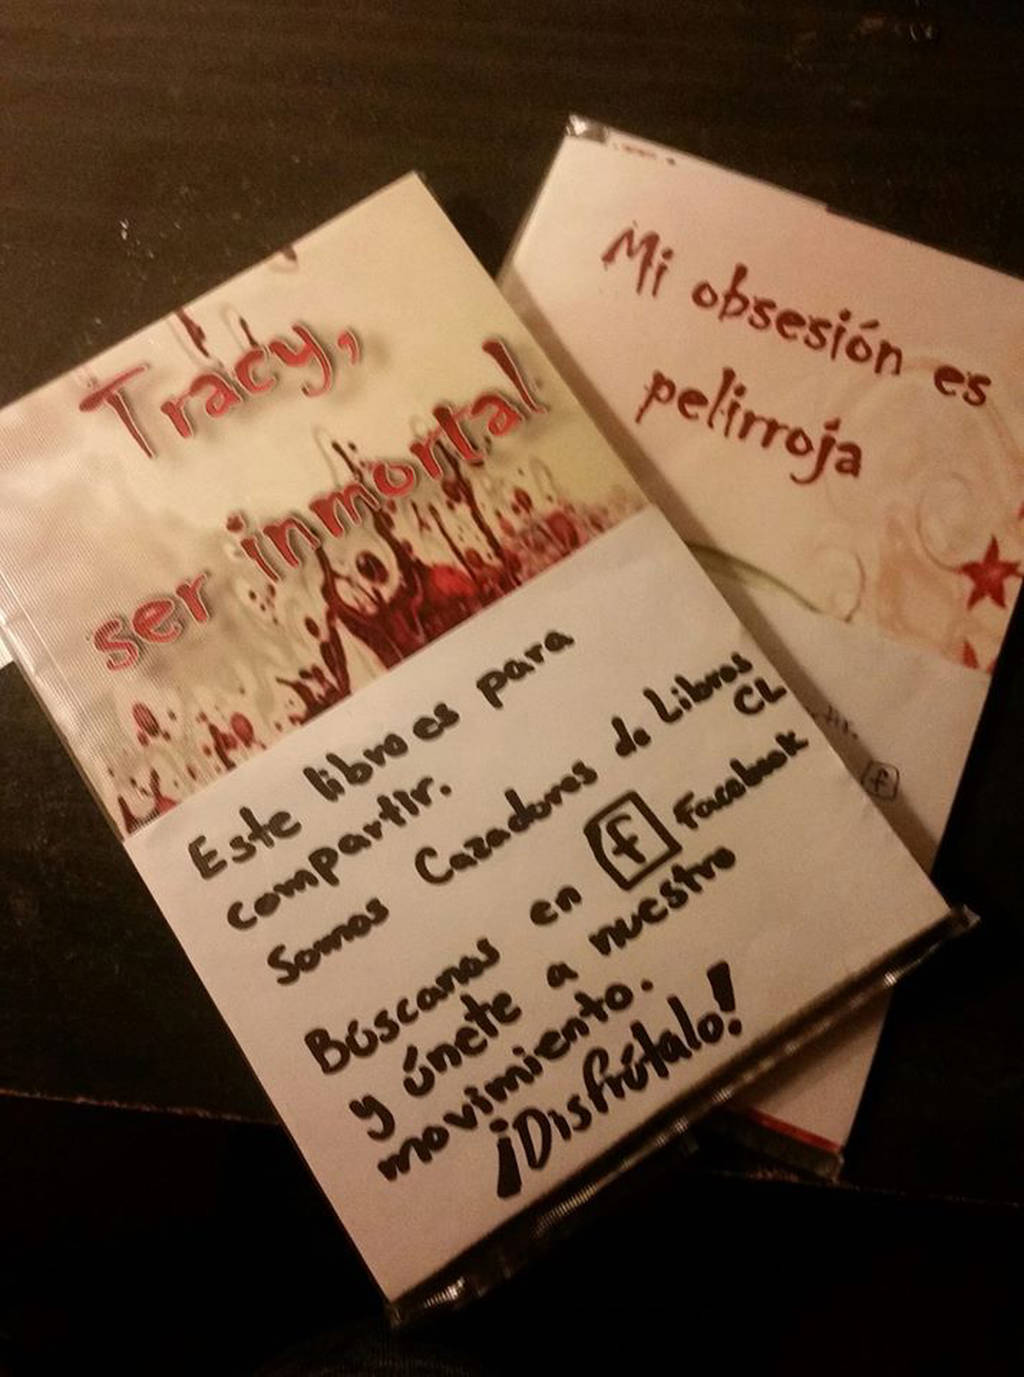 Tracy,
ser inmortal
Este libro es para
compartir.
Somos Cazadores de Libros
CL
Búscanos en f Facebook
y únete a nuestro
movimiento.
¡Disfrútalo!
Mi obsesión es
pelirroja
f